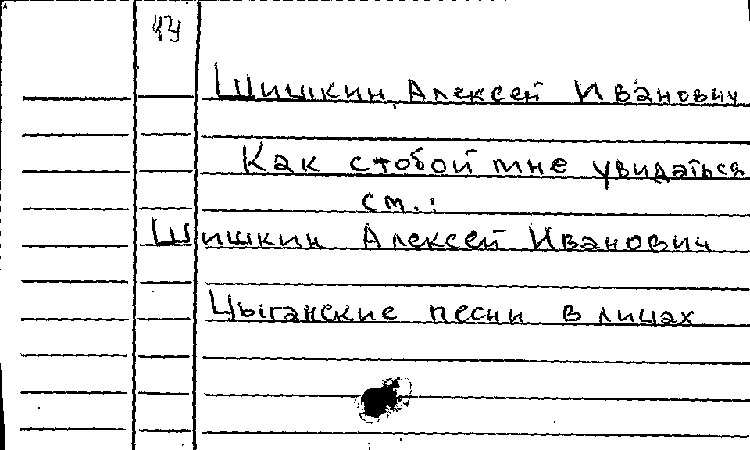 Шишкин, Алексей Иванович
Как стобой мне увидаться
см.:
Шишкин Алексей Иванович
Цыганские песни в лицах